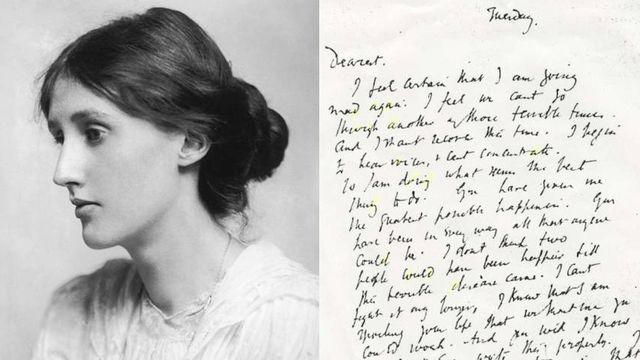 Tuesday.
Dearest.
I feel certain that I am going
mad again. I feel we cant go
through another of those terrible times.
And I shant recover this time. I begin
to hear voices, & cant concentrate.
So I am doing what seems the best
thing to do. You have given me
the greatest possible happiness. You
have been in every way all that anyone
could be. I dont think two
people could have been happier till
this terrible disease came. I cant
fight it any longer, I know that I am
spoiling your life, that without me you
could work. And you will I know
write this properly.